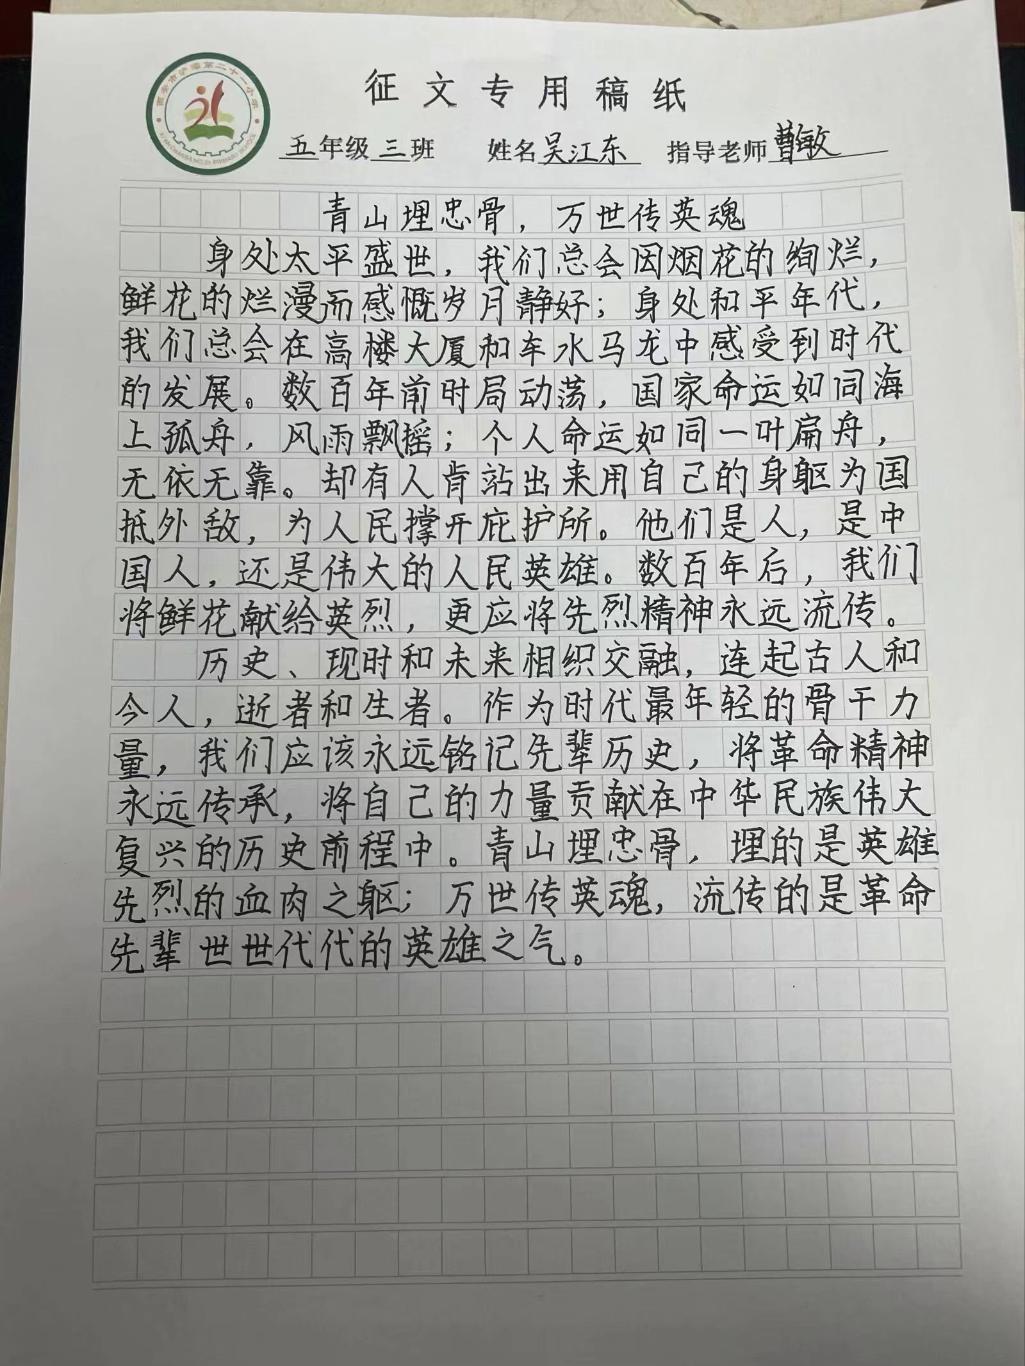 征文专用稿纸
五年级三班 姓名吴江东 指导老师曹敏
青山埋忠骨，万世传英魂
身处太平盛世，我们总会因烟花的绚烂，
鲜花的烂漫而感慨岁月静好；身处和平年代，
我们总会在高楼大厦和车水马龙中感受到时代
的发展。数百年前时局动荡，国家命运如同海
上孤舟，风雨飘摇；个人命运如同一叶扁舟，
无依无靠。却有人肯站出来用自己的身躯为国
抵外敌，为人民撑开庇护所。他们是人，是中
国人，还是伟大的人民英雄。数百年后，我们
将鲜花献给英烈，更应将先烈精神永远流传。
历史、现时和未来相织交融，连起古人和
今人，逝者和生者。作为时代最年轻的骨干力
量，我们应该永远铭记先辈历史，将革命精神
永远传承，将自己的力量贡献在中华民族伟大
复兴的历史前程中。青山埋忠骨，埋的是英雄
先烈的血肉之躯；万世传英魂，流传的是革命
先辈世世代代的英雄之气。